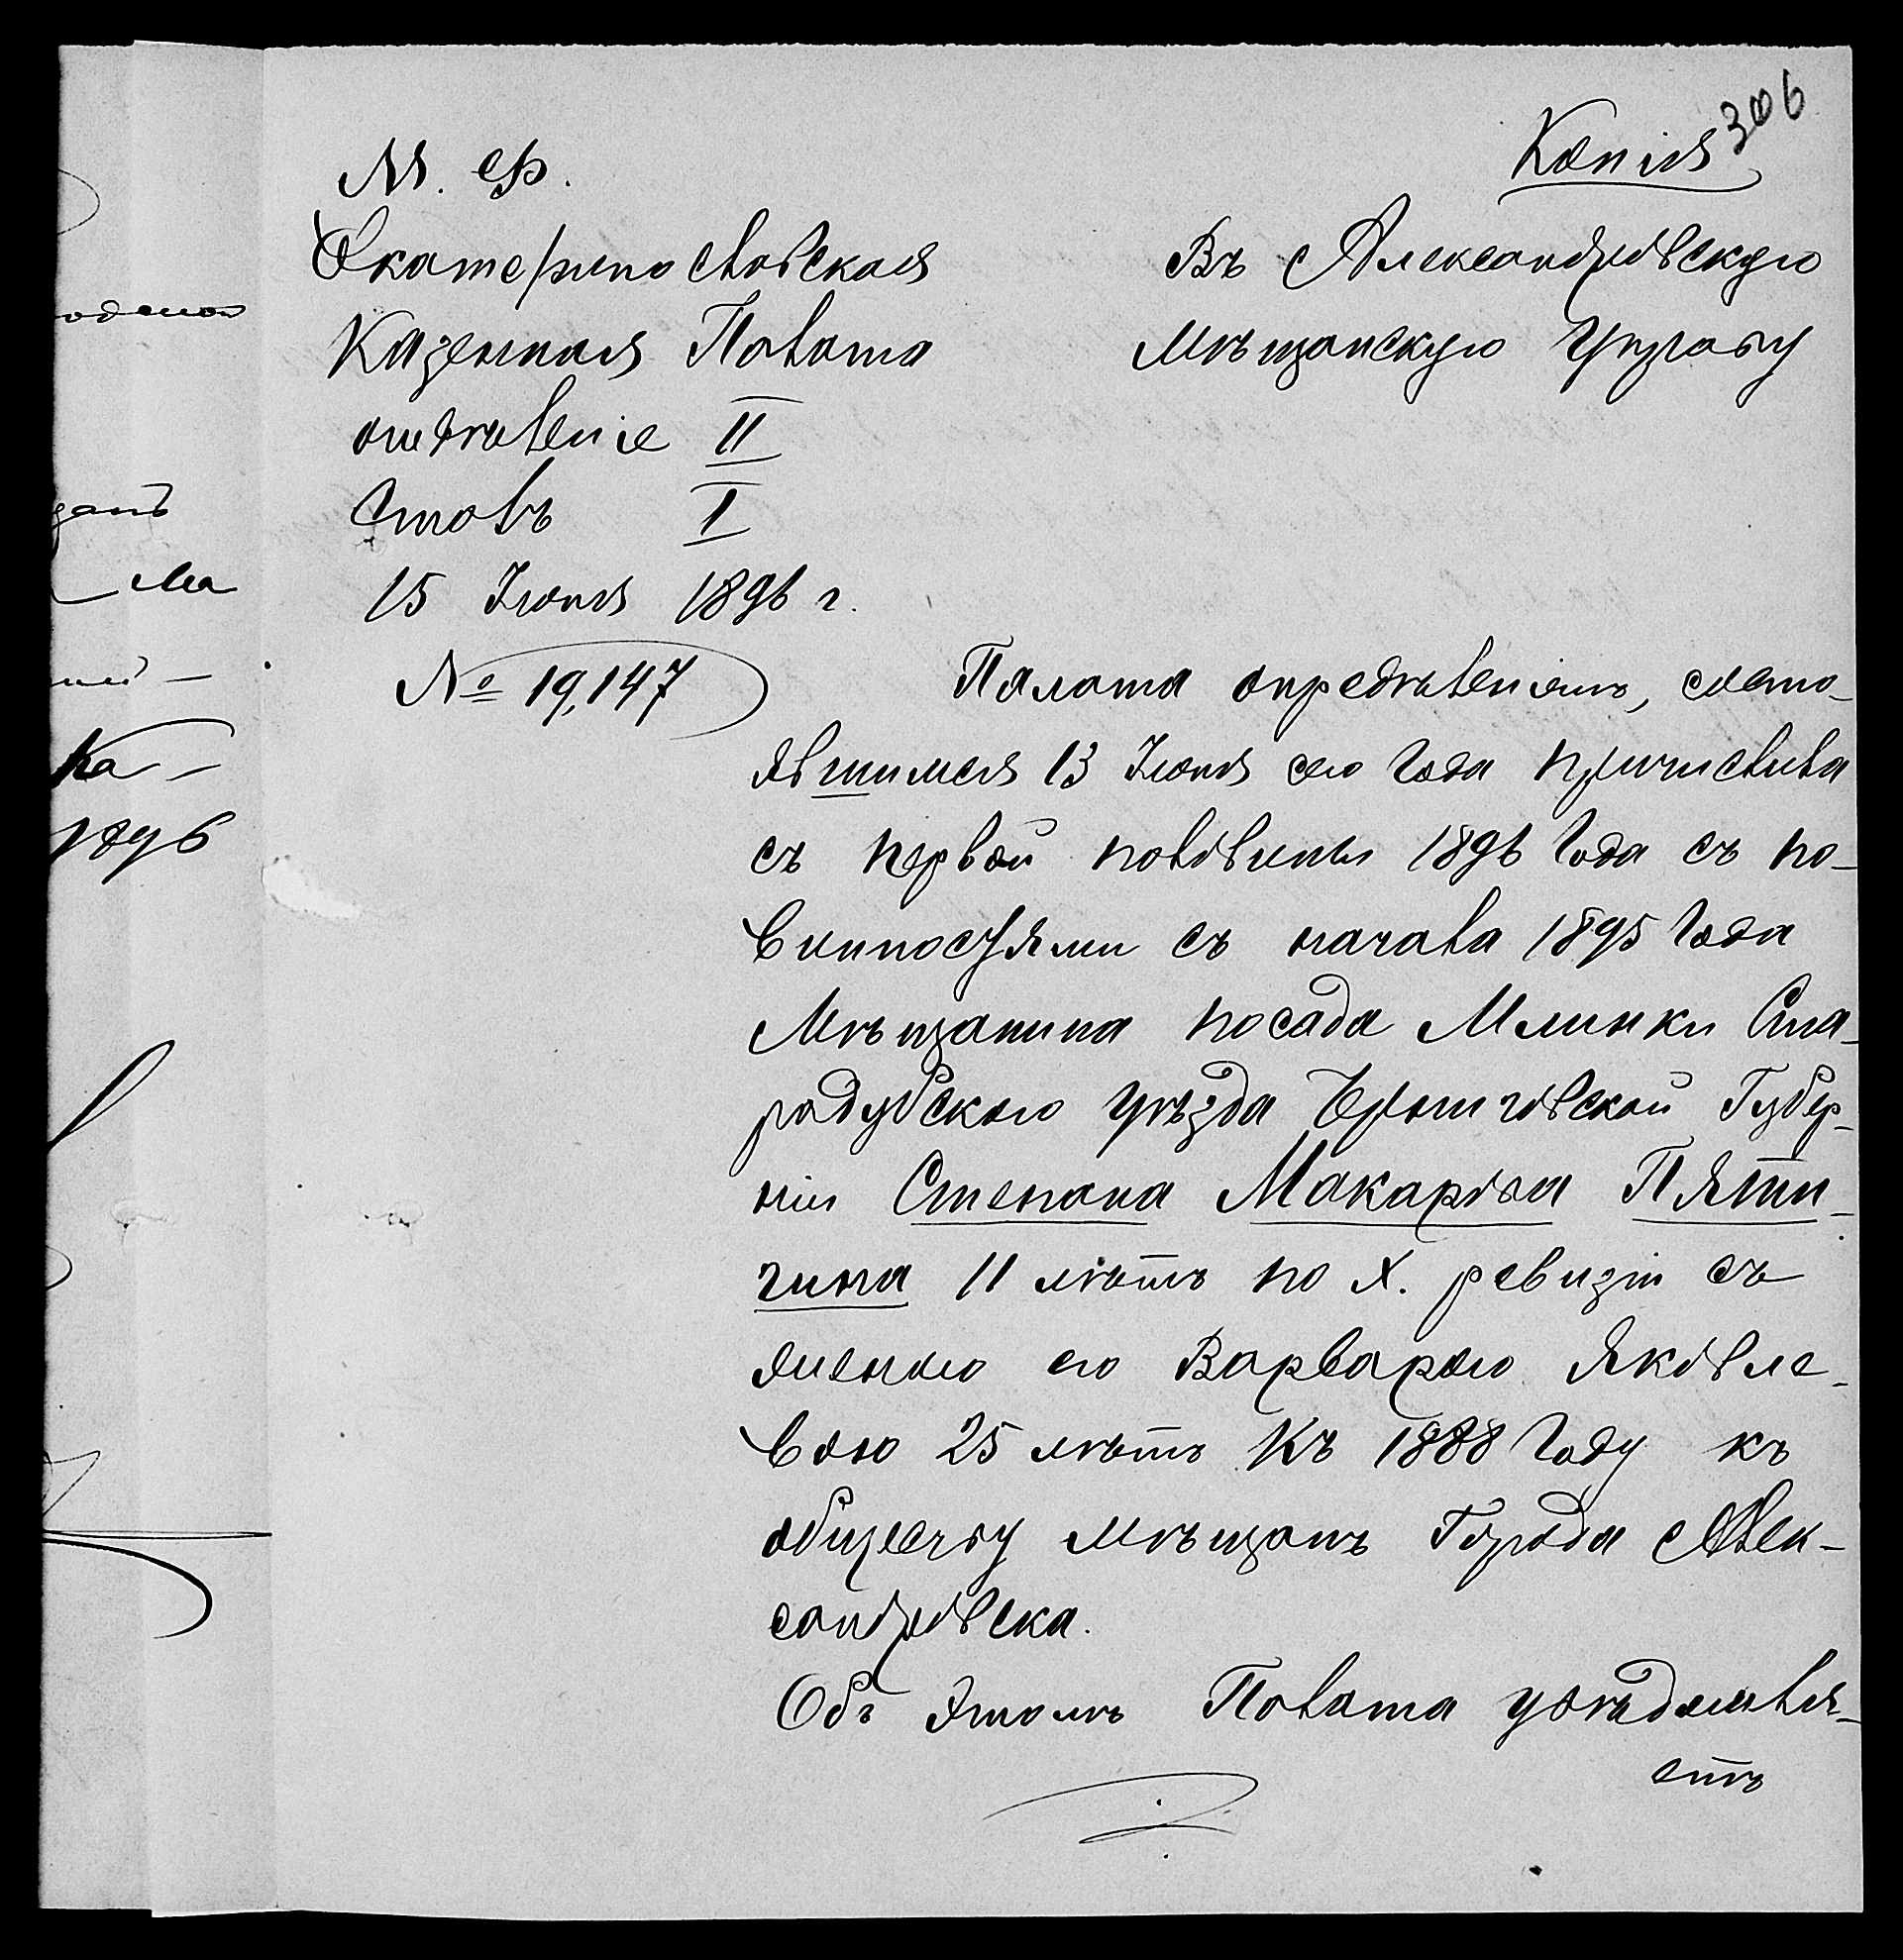 306
Копія
М. Ф.
Екатеринославская
Казенная Палата
отдѣленіе II
Столъ I
15 Іюня 1896 г.
№ 19,147
Въ Александровскую
Мѣщанскую Управу
Палата опредѣленіемъ, состо-
явшимся 13 Іюня сего года причислила
съ первой половины 1896 года съ по-
винностями съ начала 1895 года
Мѣщанина посада Млинки Ста-
родубскаго уѣзда Черниговской Губер-
ніи Степана Макарова Пяти-
гина 11 лѣтъ по X. ревизіи съ
женою его Варварою Яковле-
вою 25 лѣтъ къ 1888 году къ
обществу мѣщанъ города Алек-
сандровска.
Объ этомъ Палата увѣдомля-
етъ
одной
Ма
ка-